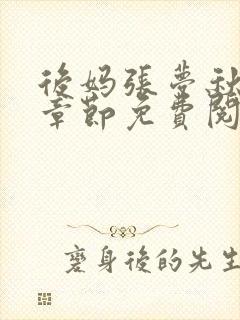 後妈張夢秋
章節免費閱
变身後的先生